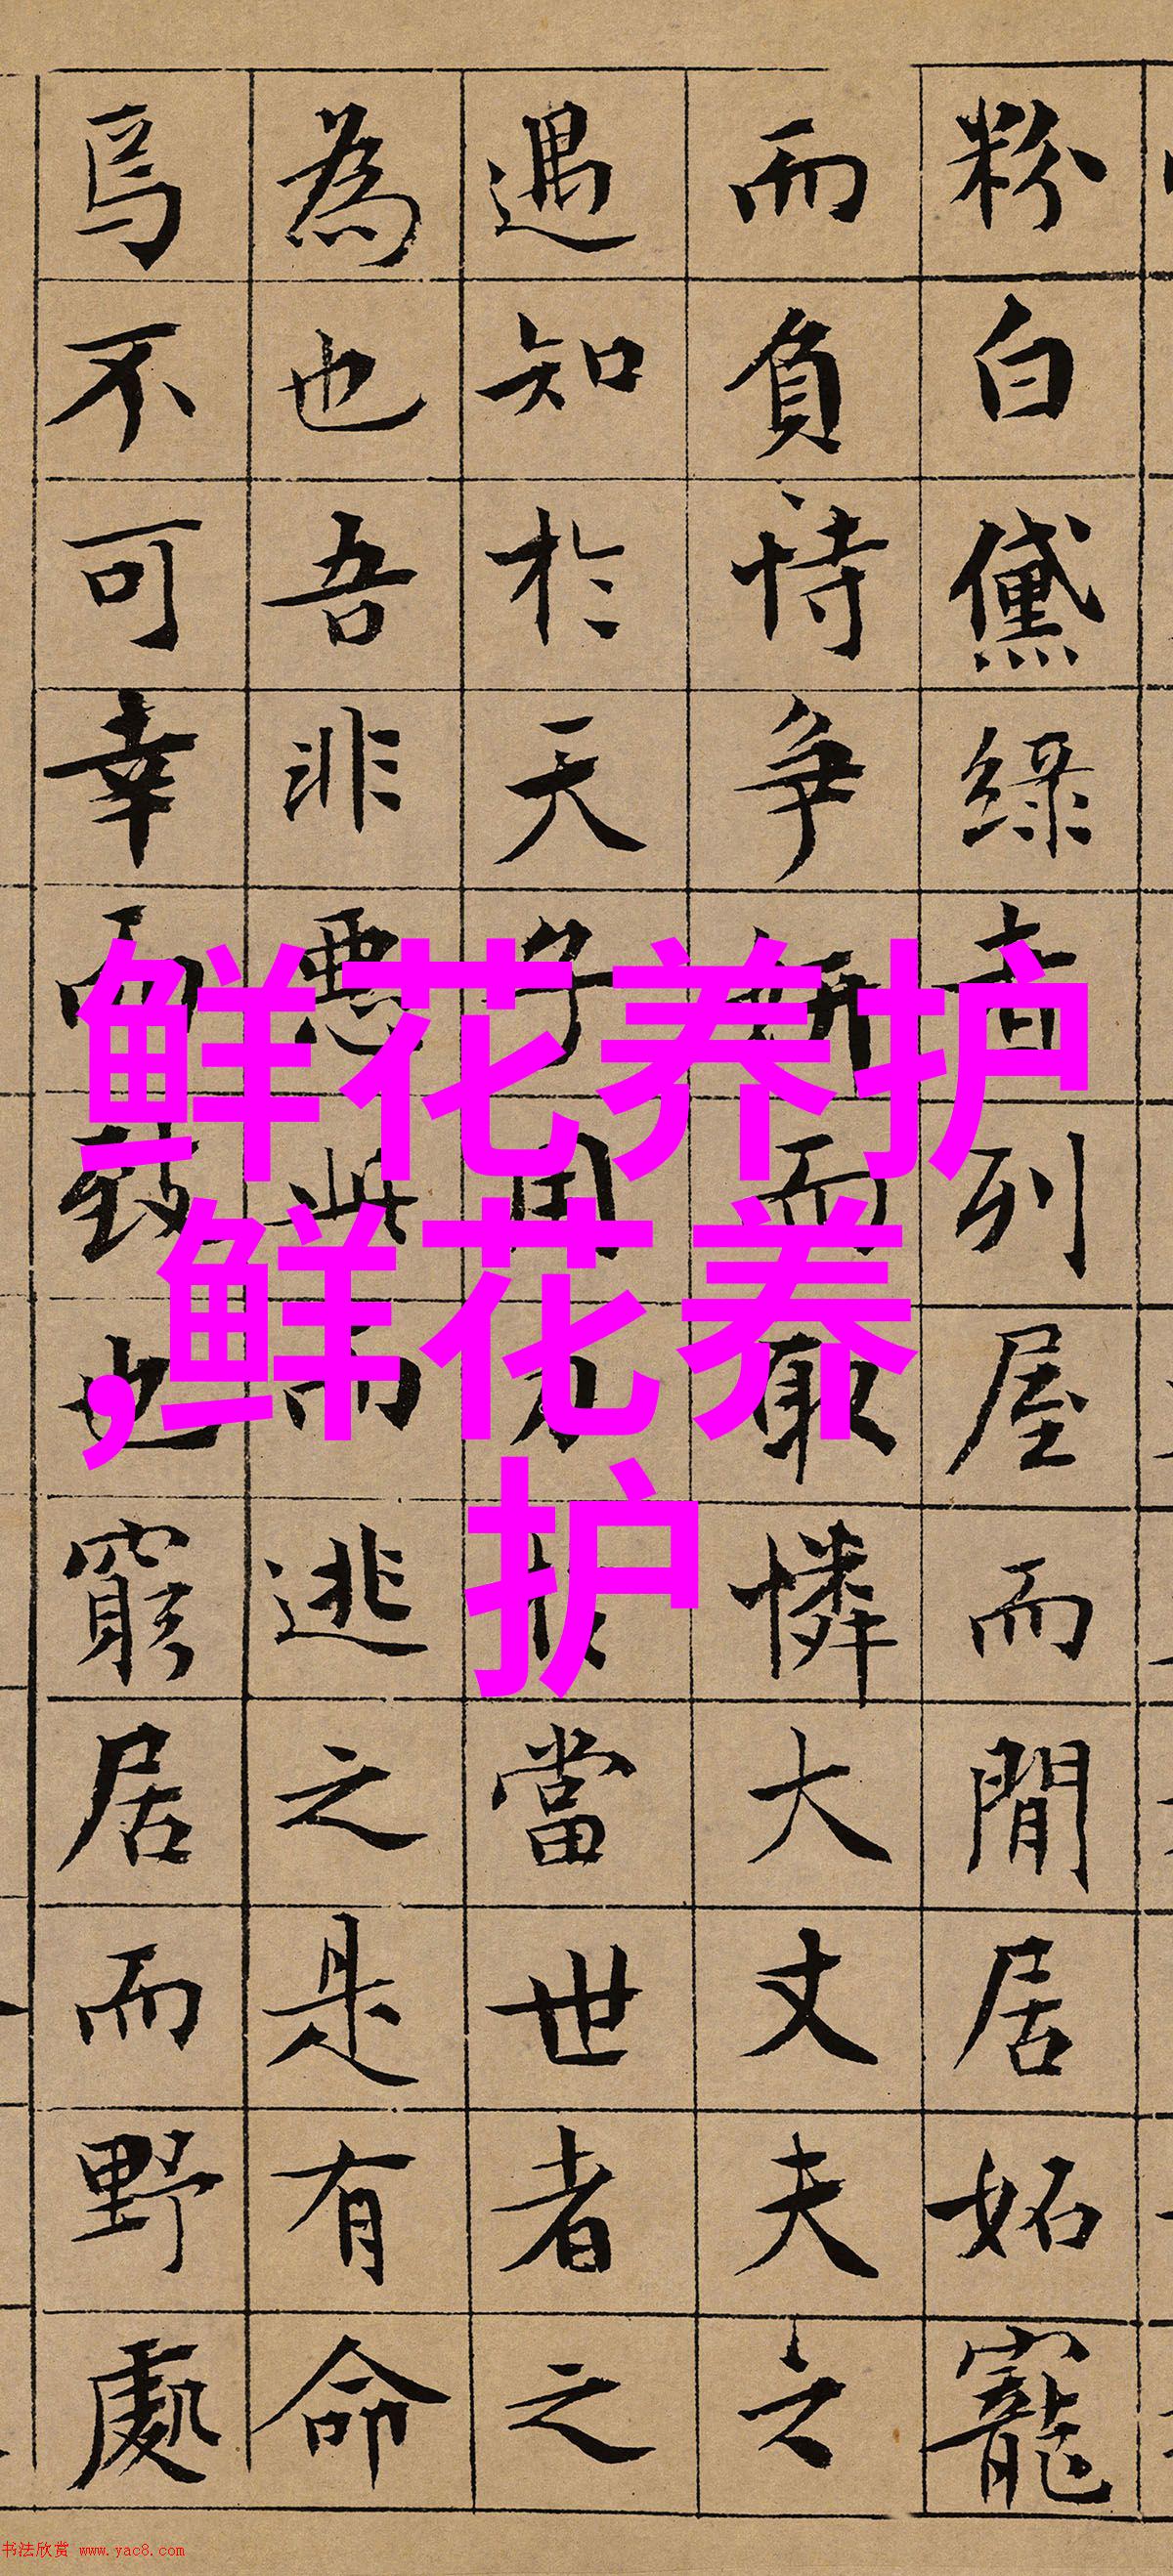 粉白黛綠者列屋而閒居妬寵
而負恃爭妍而取憐大丈夫之
遇知於天子用力於當世者之
為也吾非惡此而逃之是有命
焉不可幸而致也窮居而野處
鲜花养护
,鲜花养
护
书法欣赏 www.yac8.com